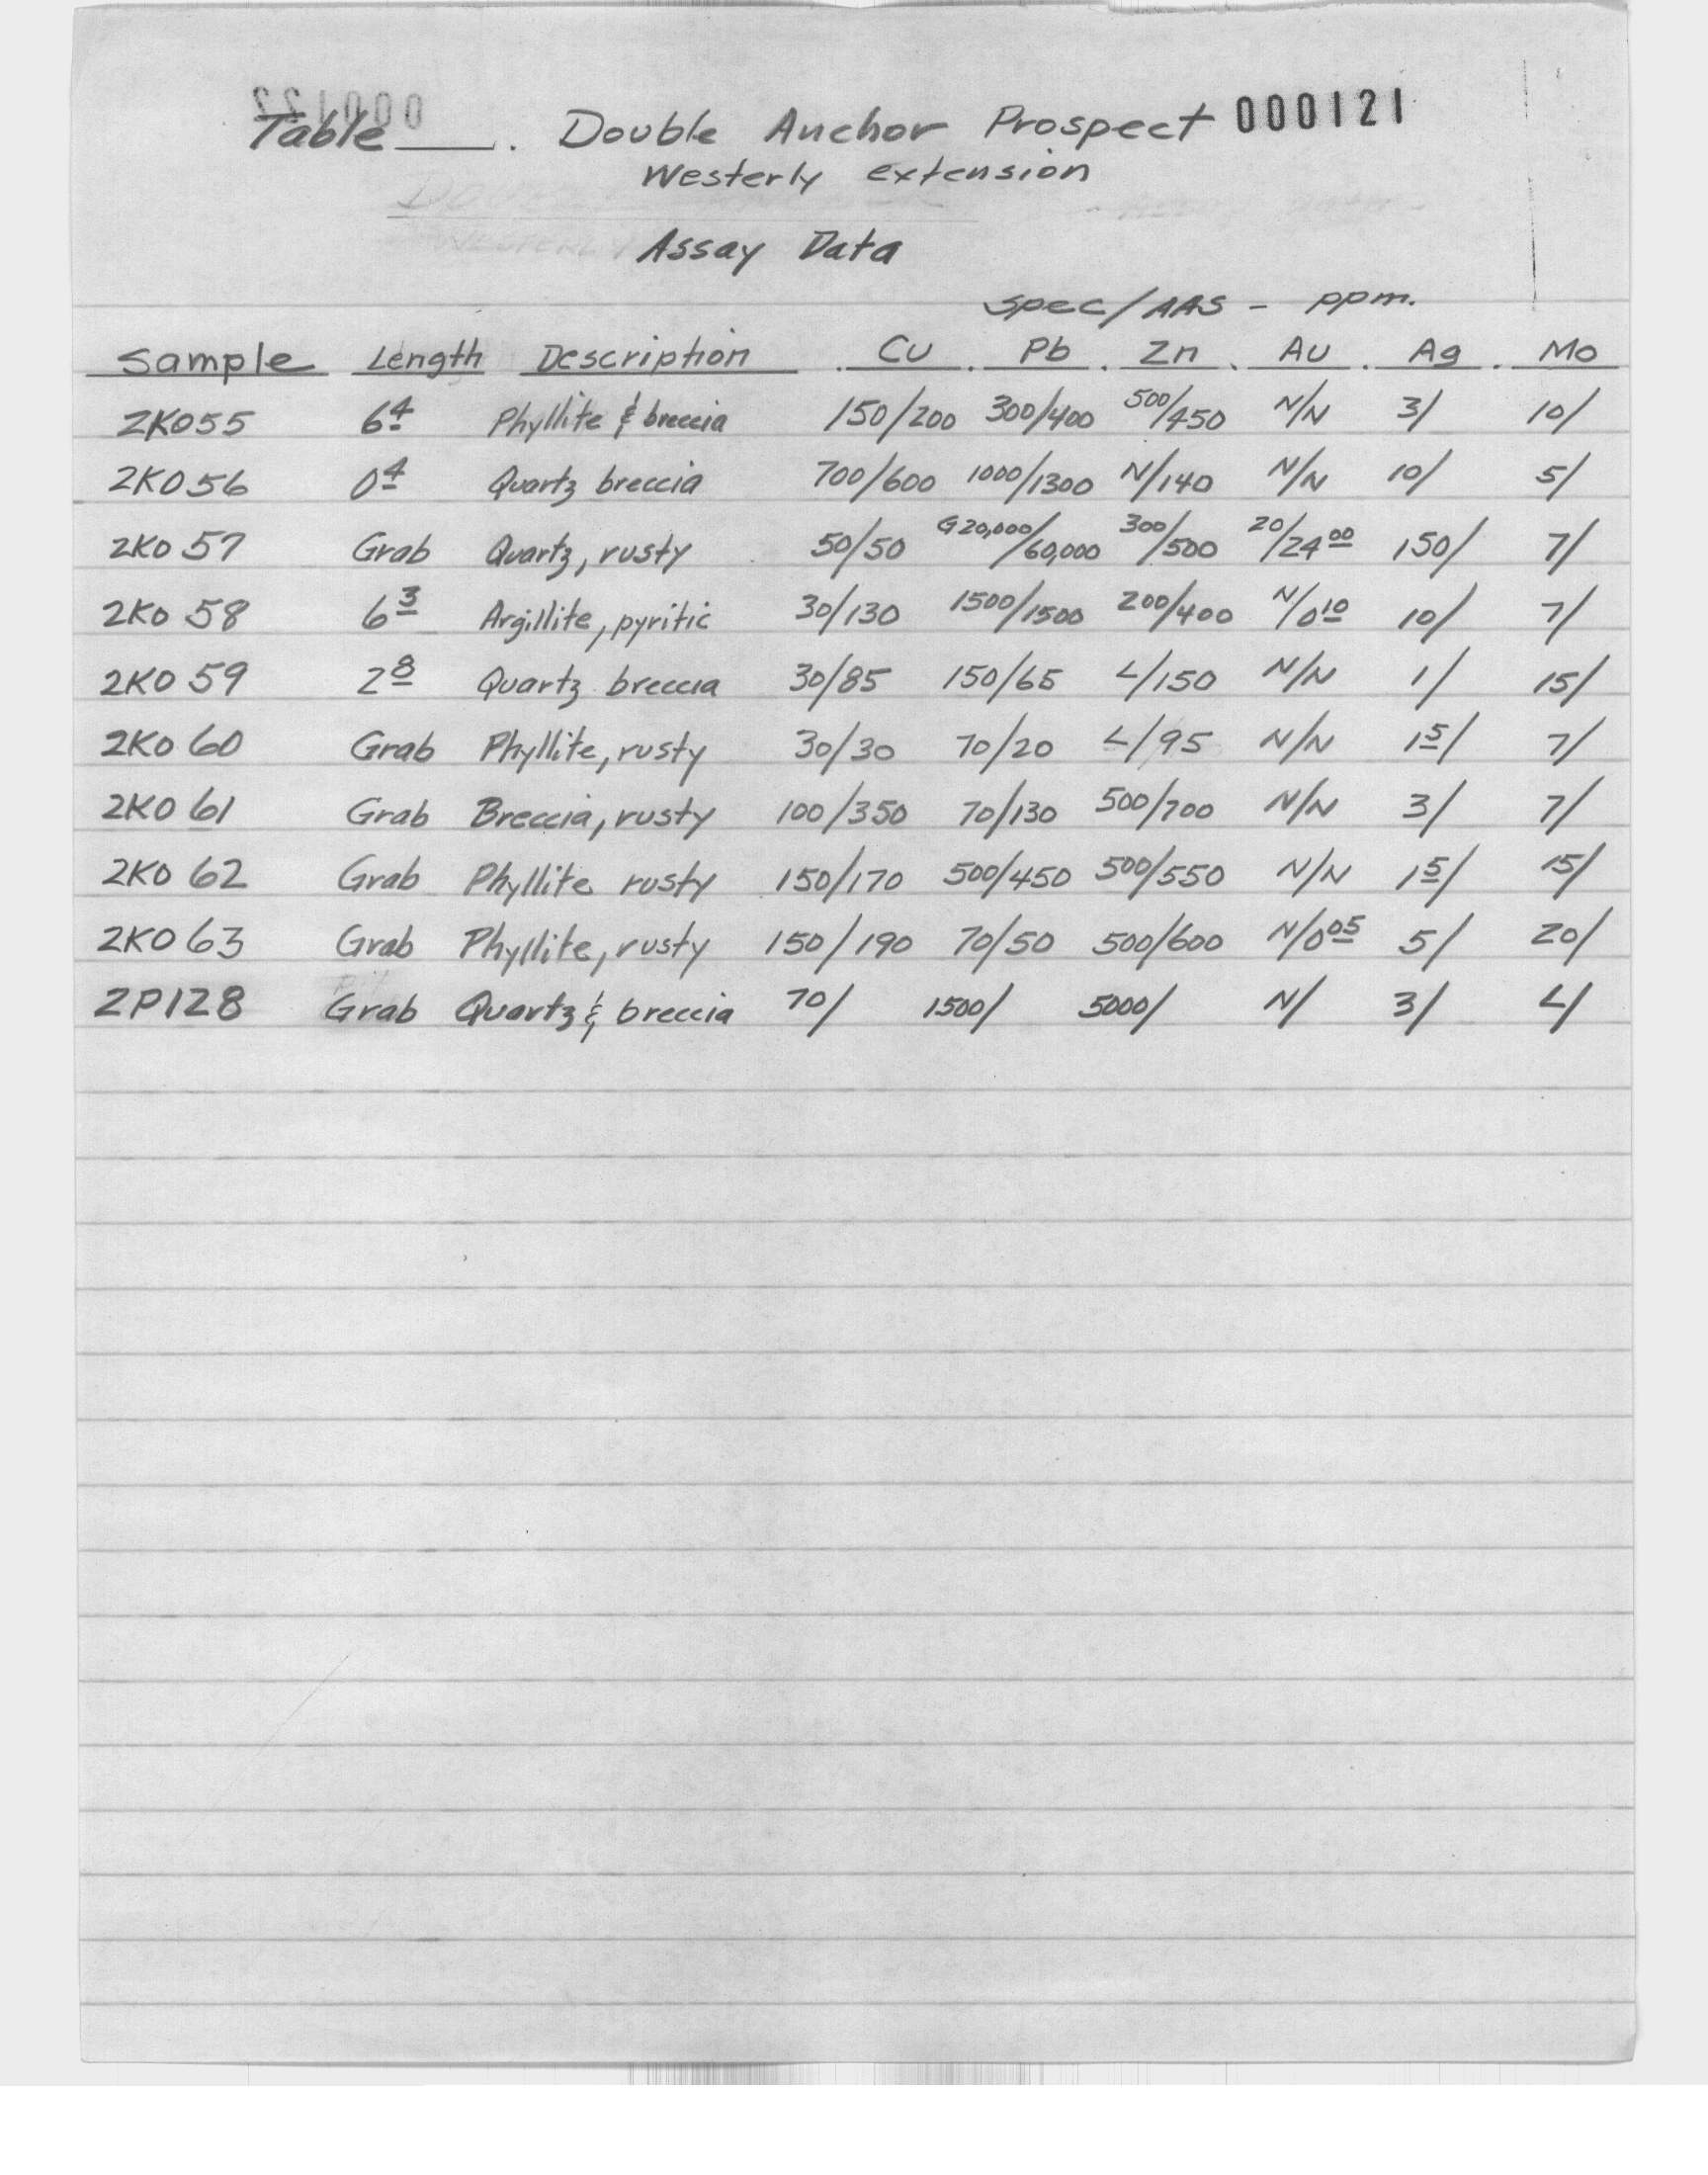 Table ____. Double Anchor Prospect 000121
Westerly extension
Assay Data
Spec/AAS - ppm.
Sample Length Description Cu Pb Zn Au Ag Mo
2K055 6⁴ Phyllite & breccia 150/200 300/400 500/450 N/N 3/ 10/
2K056 0⁴ Quartz breccia 700/600 1000/1300 N/140 N/N 10/ 5/
2K057 Grab Quartz, rusty 50/50 G20,000/60,000 300/500 20/24⁰⁰ 150/ 7/
2K058 6³ Argillite, pyritic 30/130 1500/1500 200/400 N/0¹⁰ 10/ 7/
2K059 2⁸ Quartz breccia 30/85 150/65 L/150 N/N 1/ 15/
2K060 Grab Phyllite, rusty 30/30 70/20 L/95 N/N 1⁵/ 7/
2K061 Grab Breccia, rusty 100/350 70/130 500/700 N/N 3/ 7/
2K062 Grab Phyllite rusty 150/170 500/450 500/550 N/N 1⁵/ 15/
2K063 Grab Phyllite, rusty 150/190 70/50 500/600 N/0⁰⁵ 5/ 20/
2P128 Grab Quartz & breccia 70/ 1500/ 5000/ N/ 3/ L/